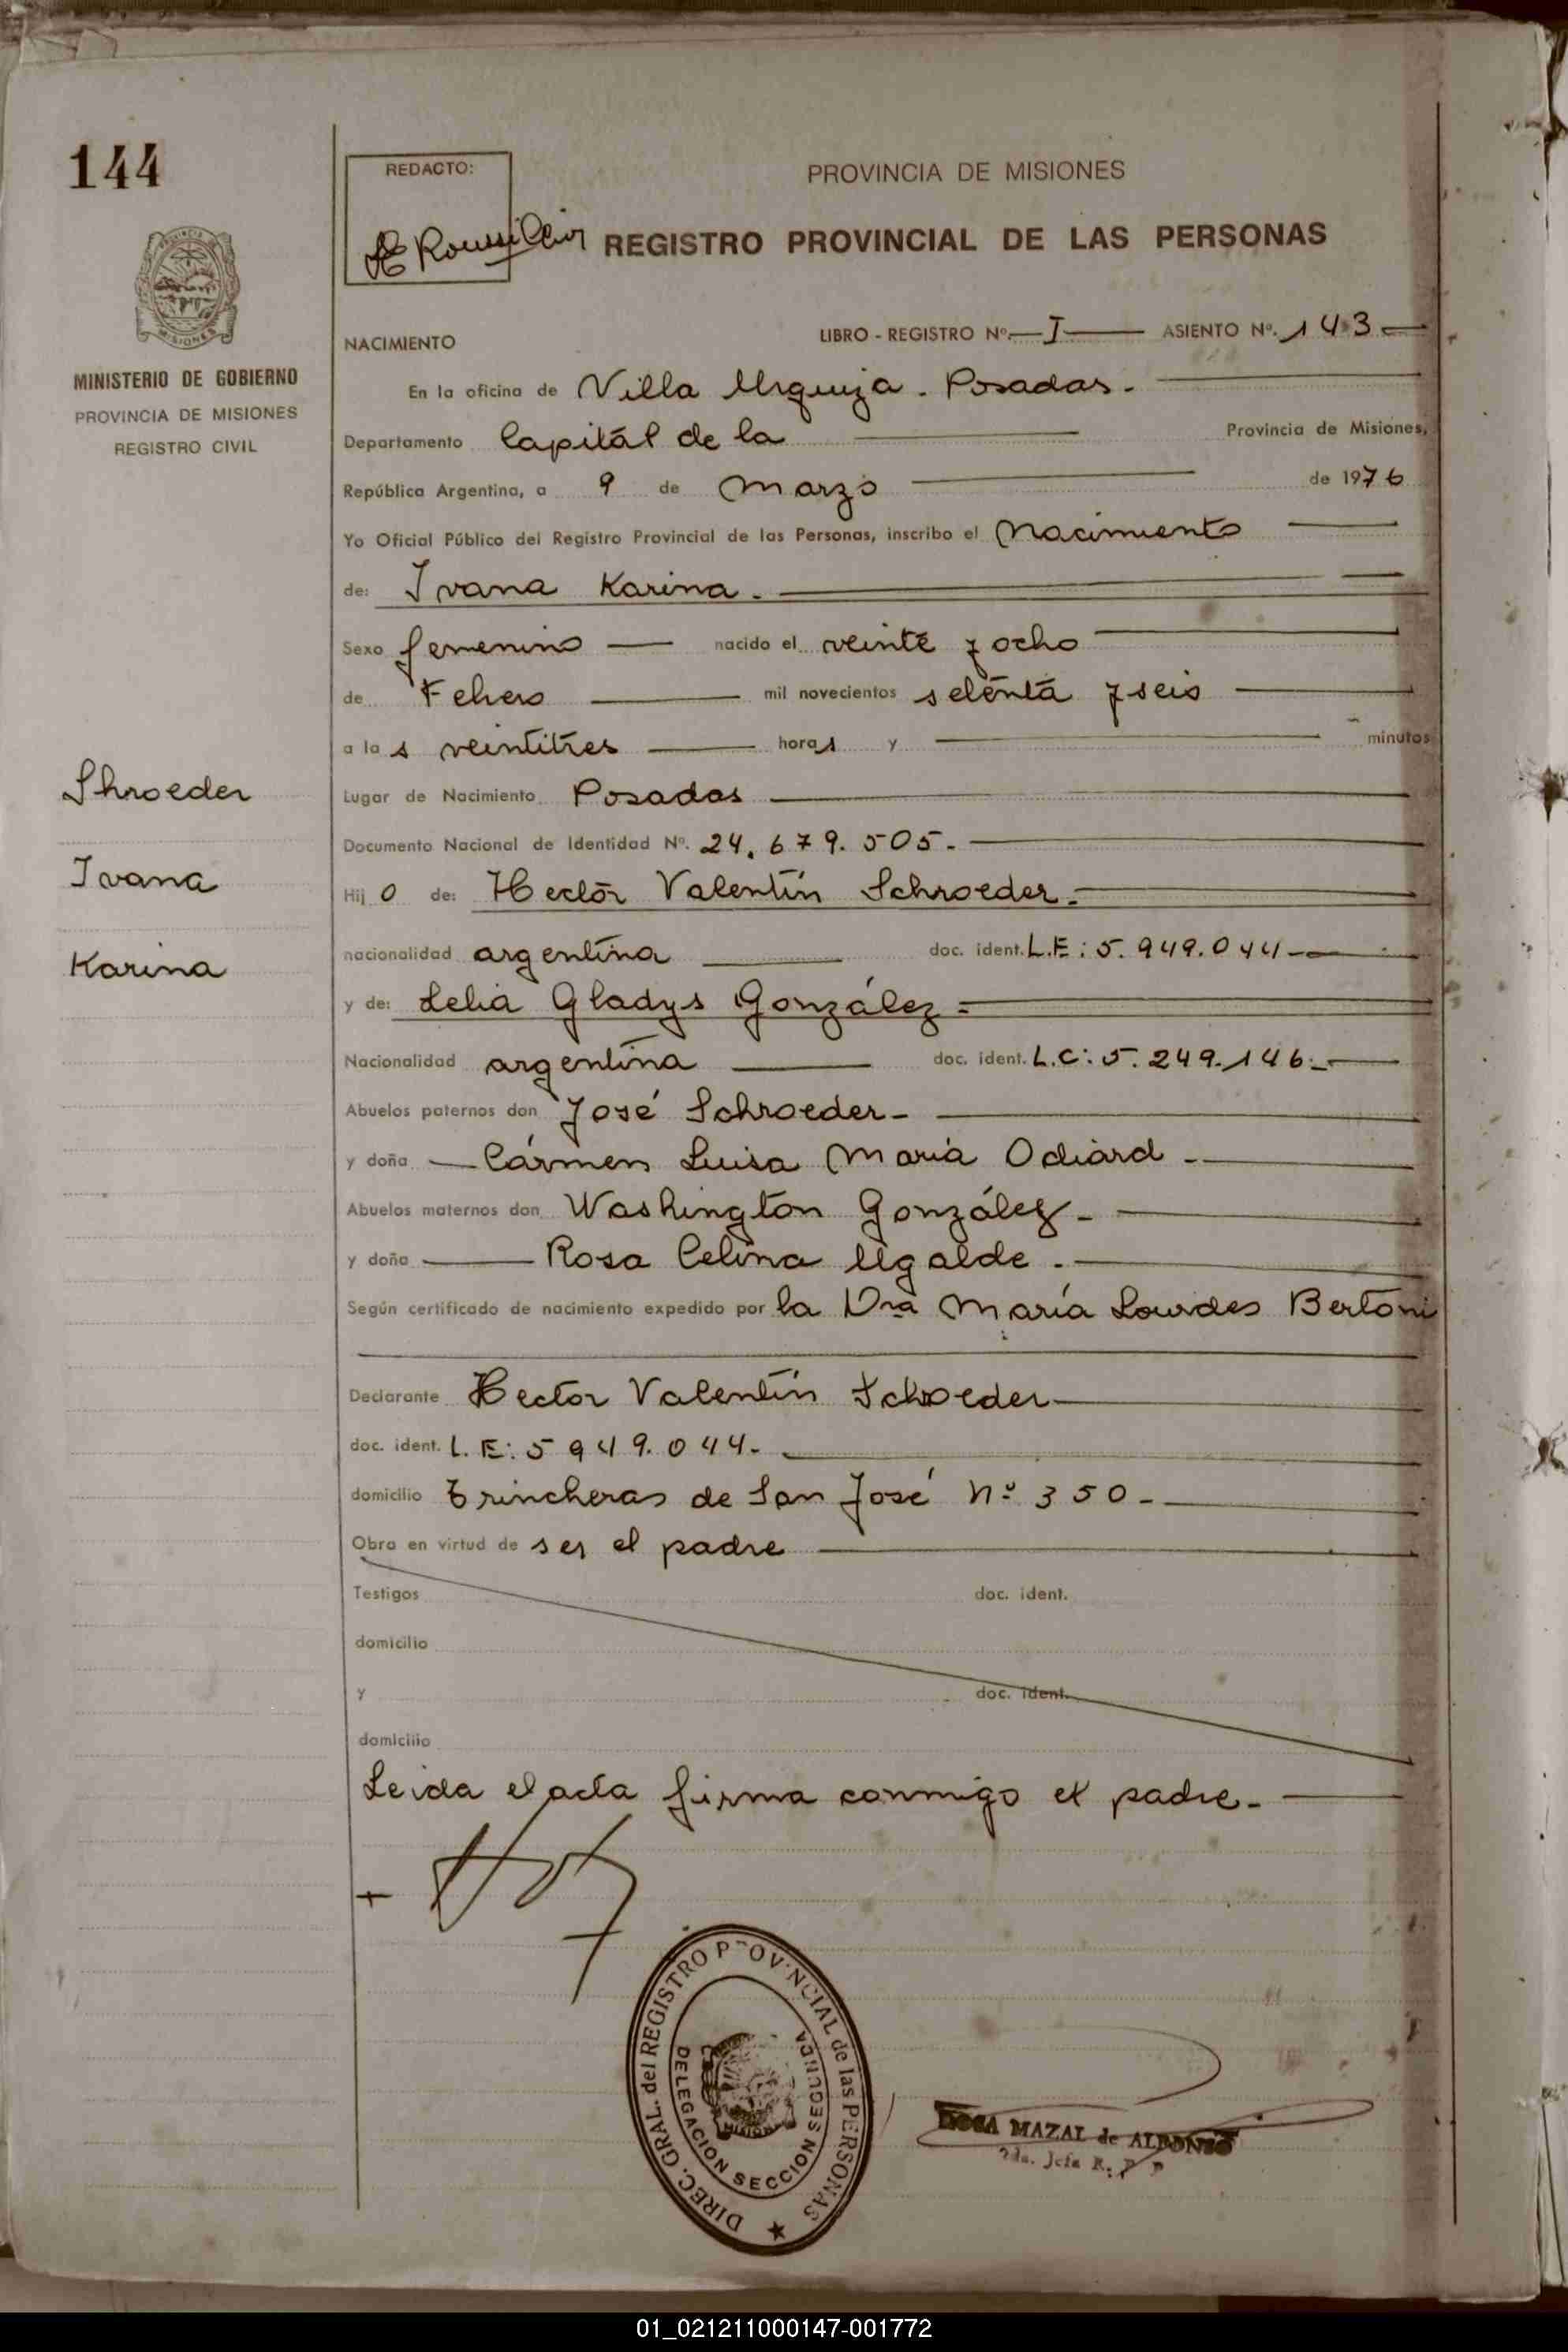 144
REDACTO:
PROVINCIA DE MISIONES
REGISTRO PROVINCIAL DE LAS PERSONAS
MINISTERIO DE GOBIERNO
PROVINCIA DE MISIONES
REGISTRO CIVIL
NACIMIENTO LIBRO - REGISTRO Nº. I ASIENTO Nº. 143
En la oficina de Villa Urquiza. Posadas.
Departamento Capitál de la Provincia de Misiones,
República Argentina, a 9 de Marzo de 1976
Yo Oficial Público del Registro Provincial de las Personas, inscribo el Nacimiento
de: Ivana Karina.
Sexo femenino nacido el veinte y ocho
de Febrero mil novecientos setenta y seis
a las veintitres horas y minutos
Shroeder
Ivana
Karina
Lugar de Nacimiento Posadas
Documento Nacional de Identidad Nº. 24.679.505.-
Hijo de: Hector Valentín Schroeder.-
nacionalidad argentina doc. ident. L.E: 5.949.044-
y de: Lelia Gladys González=
Nacionalidad argentina doc. ident. L.C: 5.249.146.-
Abuelos paternos don José Schroeder-
y doña Cármen Luisa María Odiard-
Abuelos maternos don Washington González-
y doña Rosa Celina Ugalde.-
Según certificado de nacimiento expedido por la Dra María Lourdes Bertoni
Declarante Hector Valentín Schroeder
doc. ident. L.E: 5949.044.-
domicilio Trincheras de San José Nº 350-
Obra en virtud de ser el padre
Testigos doc. ident.
domicilio
y doc. ident.
domicilio
Leida el acta firma conmigo el padre.-
DIREC. GRAL. del REGISTRO PROVINCIAL de las PERSONAS
DELEGACION SECCION SEGUNDA
MISIONES
ROSA MAZAL de ALFONSO
2da. Jefa R. P. P
01_021211000147-001772